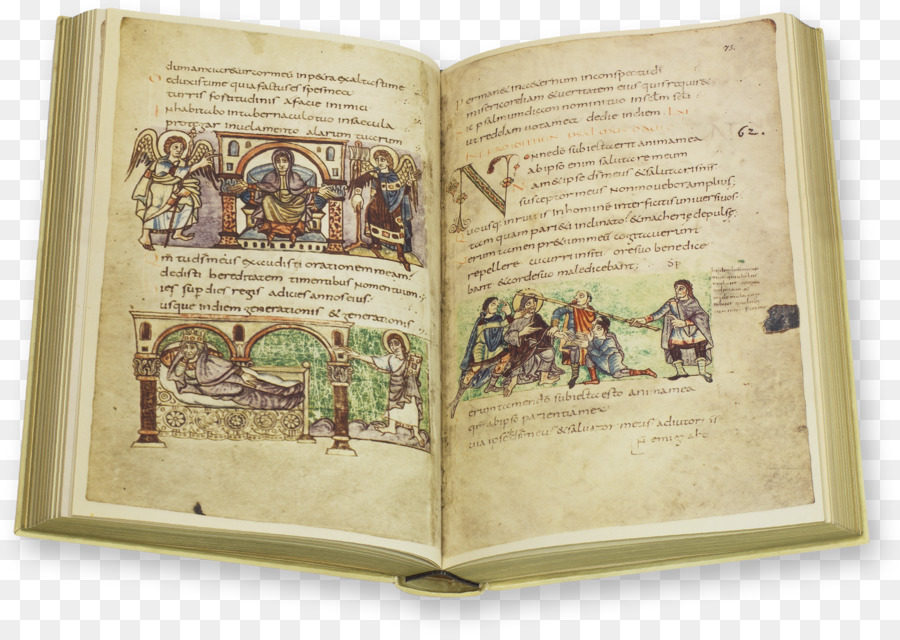 dumanxiaretur cormeu inpetra exaltastime
&duxistime quia factuses spesmea
turris fortitudinis afacie inimici
Inhabitabo intabernaculotuo insaecula
protegar inuelamento alarum tuarum
Qm tudsmeus exaudisti orationem meam
dedisti hereditatem timentibus nomentuum
dies sup dies regis adicies annoseius
usque indiem generationis &generationis
75.
permane& inaeternum inconspectudi
misericordiam &ueritatem eius quisrequir&
sic psalmumdicam nominituo insclm scli
ut reddam uotamea dediein diem LXI
62.
Nonnedo subiectaerit animamea
abipso enim salutaremeum
nam&ipse dsmeus &salutarismeus
susceptormeus nonmouebor amplius
Quousq: inruitis inhomine interficitisuniuersos
tamquam pari&i inclinato &maceriae depulse
Uerumtamen praetiummeu cogitauerunt
repellere cucurri insiti oresuo benedice
bant &cordesuo maledicebant Sp
Uerumtamendo subiectaesto animamea
qm abipso patientiamea
quia ipse dsmeus &saluator meus adiutor
emigrabo